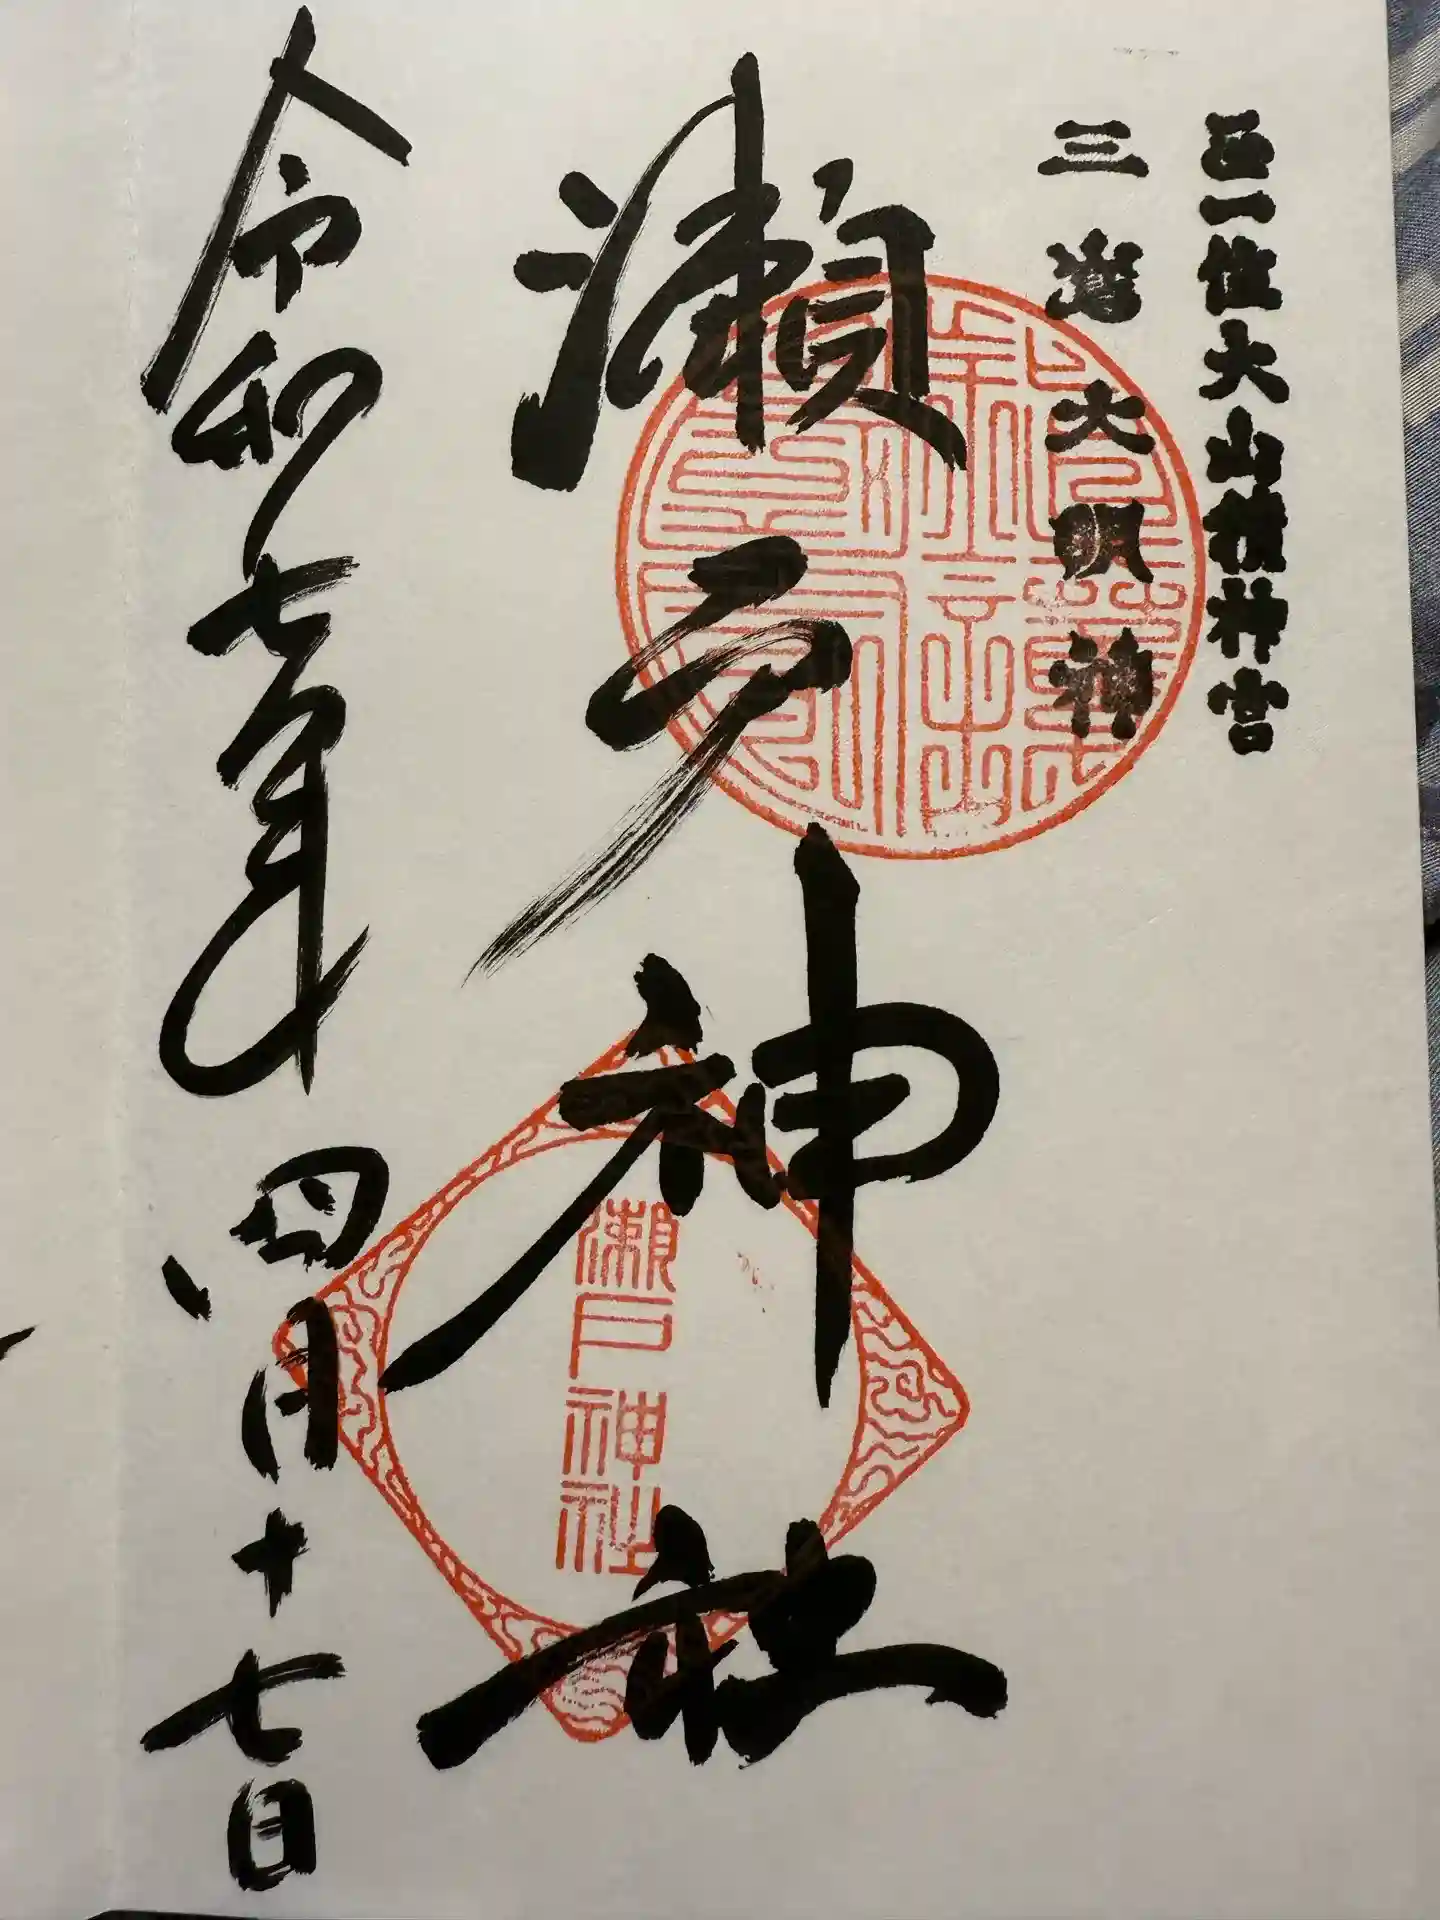 正一位大山積神宮
三嶋大明神
瀬戸神社
瀬戸神社
令和七年四月十七日